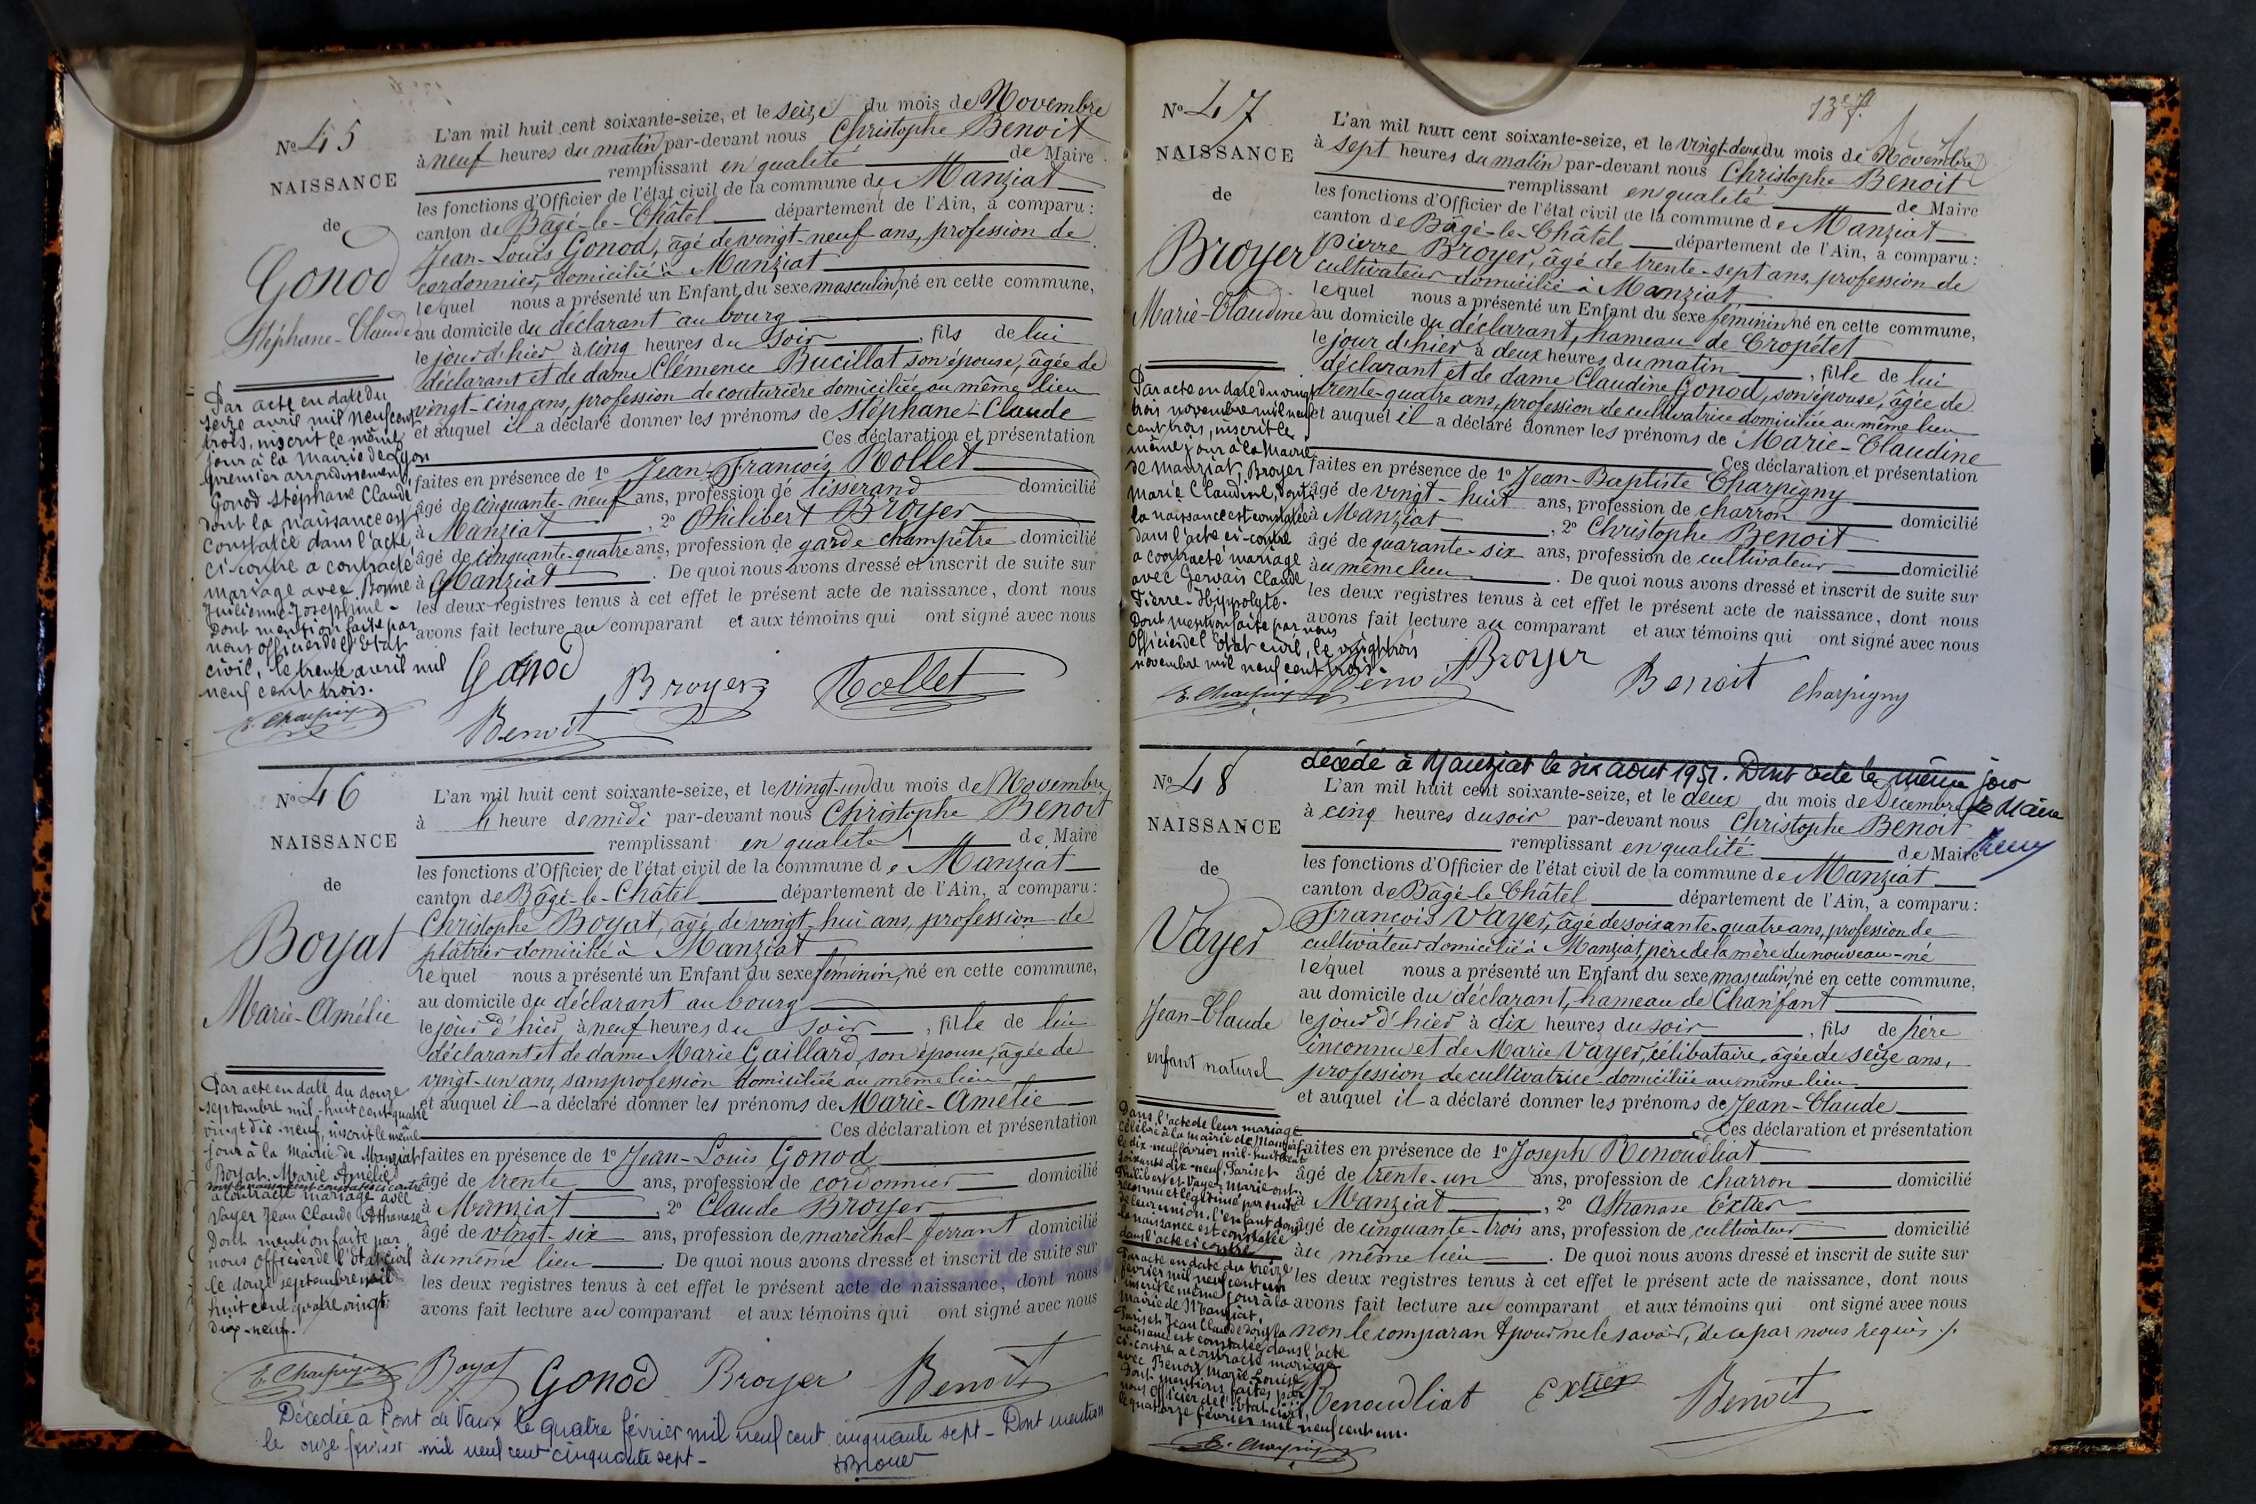 No 45
NAISSANCE
de
Gonod
Stéphane-Claude
Par acte en date du
seize avril mil neuf cent
trois, inscrit le même
jour à la mairie de Lyon
premier arrondissement,
Gonod Stéphane Claude
dont la naissance est
constatée dans l'acte
ci-contre a contracté
mariage avec Bonne
Julienne Joséphine.
Dont mention faite par
nous officier de l'Etat
civil, le trente avril mil
neuf cent trois.
L'an mil huit cent soixante-seize, et le seize du mois de Novembre
à neuf heures du matin par-devant nous Christophe Benoit
remplissant en qualité de Maire
les fonctions d'Officier de l'état civil de la commune de Manziat
canton de Bâgé-le-Châtel département de l'Ain, a comparu:
Jean-Louis Gonod, âgé de vingt-neuf ans, profession de
cordonnier, domicilié à Manziat
lequel nous a présenté un Enfant du sexe masculin, né en cette commune,
au domicile du déclarant au bourg
le jour d'hier à cinq heures du soir, fils de lui
déclarant et de dame Clémence Bucillat son épouse, âgée de
vingt-cinq ans, profession de couturière domiciliée au même lieu
et auquel il a déclaré donner les prénoms de Stéphane-Claude
Ces déclaration et présentation
faites en présence de 1o Jean-François Rollet
âgé de cinquante-neuf ans, profession de tisserand domicilié
à Manziat, 2o Philibert Broyer
âgé de cinquante-quatre ans, profession de garde champêtre domicilié
à Manziat. De quoi nous avons dressé et inscrit de suite sur
les deux registres tenus à cet effet le présent acte de naissance, dont nous
avons fait lecture au comparant et aux témoins qui ont signé avec nous
Gonod Broyer Rollet
Benoit
No 46
NAISSANCE
de
Boyat
Marie-Amélie
Par acte en date du douze
septembre mil-huit cent quatre
vingt dix-neuf, inscrit le même
jour à la mairie de Manziat
Boyat Marie Amélie
dont la naissance est constatée ci-contre
a contracté mariage avec
Vayer Jean Claude Athanase
Dont mention faite par
nous Officier de l'état civil
le douze septembre mil
huit cent quatre vingt
dix-neuf.
L'an mil huit cent soixante-seize, et le vingt-un du mois de Novembre
à h heure de midi par-devant nous Christophe Benoit
remplissant en qualité de Maire
les fonctions d'Officier de l'état civil de la commune de Manziat
canton de Bâgé-le-Châtel département de l'Ain, a comparu:
Christophe Boyat, âgé de vingt-hui ans, profession de
plâtrier domicilié à Manziat
lequel nous a présenté un Enfant du sexe féminin, né en cette commune,
au domicile du déclarant au bourg
le jour d'hier à neuf heures du soir, fille de lui
déclarant et de dame Marie Gaillard, son épouse, âgée de
vingt-un ans, sans profession domiciliée au même lieu
et auquel il a déclaré donner les prénoms de Marie-Amélie
Ces déclaration et présentation
faites en présence de 1o Jean-Louis Gonod
âgé de trente ans, profession de cordonnier domicilié
à Manziat, 2o Claude Broyer
âgé de vingt-six ans, profession de maréchal-ferrant domicilié
au même lieu. De quoi nous avons dressé et inscrit de suite sur
les deux registres tenus à cet effet le présent acte de naissance, dont nous
avons fait lecture au comparant et aux témoins qui ont signé avec nous
Boyat Gonod Broyer Benoit
Décédée à Pont de Vaux le quatre février mil neuf cent cinquante sept - Dont mention
le onze février mil neuf cent cinquante sept -
No 47
NAISSANCE
de
Broyer
Marie-Claudine
Par acte en date du vingt
trois novembre mil neuf
cent trois, inscrit le
même jour à la Mairie
de Manziat, Broyer
Marie Claudine, dont
la naissance est constatée
dans l'acte ci-contre
a contracté mariage
avec Gervais Claude
Pierre-Hyppolyte.
Dont mention faite par nous
Officier de l'Etat civil, le vingt trois
novembre mil neuf cent trois.
L'an mil huit cent soixante-seize, et le vingt-deux du mois de Novembre
à sept heures du matin par-devant nous Christophe Benoit
remplissant en qualité de Maire
les fonctions d'Officier de l'état civil de la commune de Manziat
canton de Bâgé-le-Châtel département de l'Ain, a comparu:
Pierre Broyer, âgé de trente-sept ans, profession de
cultivateur domicilié à Manziat
lequel nous a présenté un Enfant du sexe féminin né en cette commune,
au domicile du déclarant, hameau de Cropetet
le jour d'hier à deux heures du matin, fille de lui
déclarant et de dame Claudine Gonod, son épouse, âgée de
trente-quatre ans, profession de cultivatrice domiciliée au même lieu
et auquel il a déclaré donner les prénoms de Marie-Claudine
Ces déclaration et présentation
faites en présence de 1o Jean-Baptiste Charpigny
âgé de vingt-huit ans, profession de charron domicilié
à Manziat, 2o Christophe Benoit
âgé de quarante-six ans, profession de cultivateur domicilié
au même lieu. De quoi nous avons dressé et inscrit de suite sur
les deux registres tenus à cet effet le présent acte de naissance, dont nous
avons fait lecture au comparant et aux témoins qui ont signé avec nous
Benoit Broyer Benoit Charpigny
décédé à Manziat le six août 1951. Dont acte le même jour
Le Maire
No 48
NAISSANCE
de
Vayer
Jean-Claude
enfant naturel
Dans l'acte de leur mariage
célébré à la mairie de Manziat
le dix-neuf février mil-huit cent
soixante dix-neuf Pariset
Philibert et Vayer Marie ont
reconnu et légitimé par suite
de leur union, l'enfant dont
la naissance est constatée
dans l'acte ci-contre
Par acte en date du treize
février mil neuf cent un
inscrit le même jour à la
mairie de Manziat,
Pariset Jean Claude dont la
naissance est constatée dans l'acte
ci-contre a contracté mariage
avec Benoit Marie Louise
Dont mentions faites par
nous Officier de l'Etat civil,
le quatorze février mil neuf cent un.
L'an mil huit cent soixante-seize, et le deux du mois de Décembre
à cinq heures du soir par-devant nous Christophe Benoit
remplissant en qualité de Maire
les fonctions d'Officier de l'état civil de la commune de Manziat
canton de Bâgé-le-Châtel département de l'Ain, a comparu:
François Vayer, âgé de soixante-quatre ans, profession de
cultivateur domicilié à Manziat, père de la mère du nouveau-né
lequel nous a présenté un Enfant du sexe masculin, né en cette commune,
au domicile du déclarant, hameau de Chanfant
le jour d'hier à dix heures du soir, fils de père
inconnu et de Marie Vayer, célibataire, âgée de seize ans,
profession de cultivatrice domiciliée au même lieu
et auquel il a déclaré donner les prénoms de Jean-Claude
Ces déclaration et présentation
faites en présence de 1o Joseph Renoudliat
âgé de trente-un ans, profession de charron domicilié
à Manziat, 2o Athanase Extier
âgé de cinquante-trois ans, profession de cultivateur domicilié
au même lieu. De quoi nous avons dressé et inscrit de suite sur
les deux registres tenus à cet effet le présent acte de naissance, dont nous
avons fait lecture au comparant et aux témoins qui ont signé avec nous
non le comparant pour ne le savoir, de ce par nous requis.
Renoudliat Extier Benoit